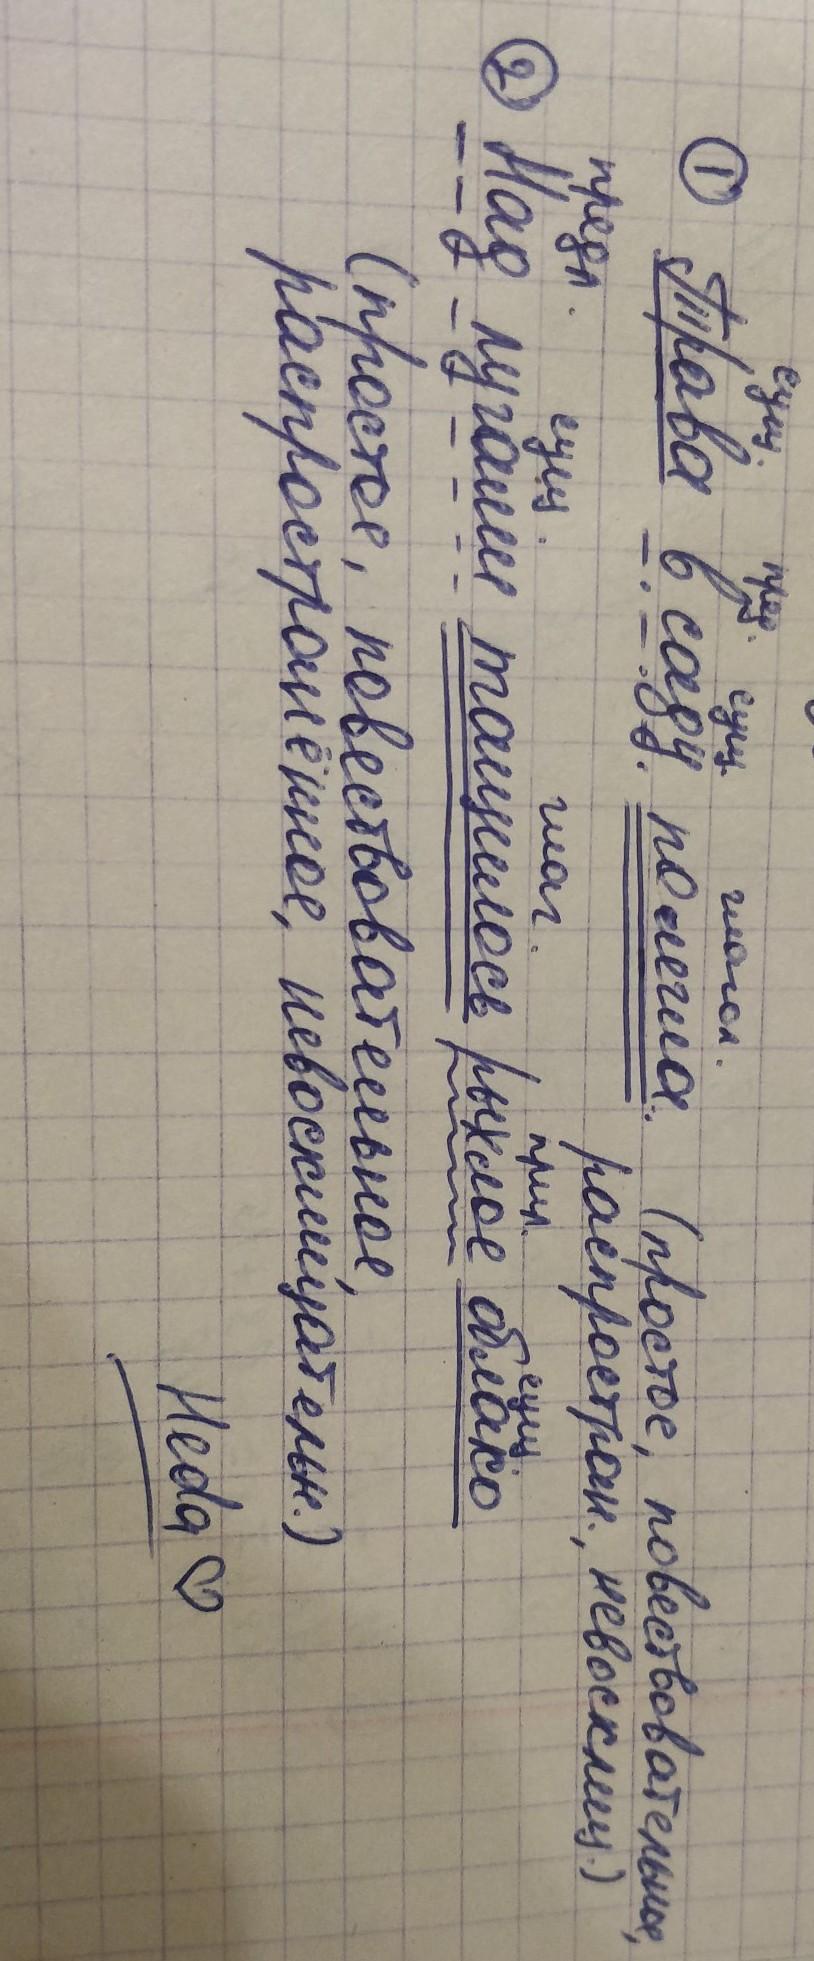 сущ. пред. сущ. глагол.
① Трава в саду полегла. (простое, повествовательное,
распростран., невосклиц.)
предл. сущ. глаг. прил. сущ.
② Над лугами тащилось рыхлое облако
(простое, повествовательное,
распространённое, невосклицательн.)
Neda ♡